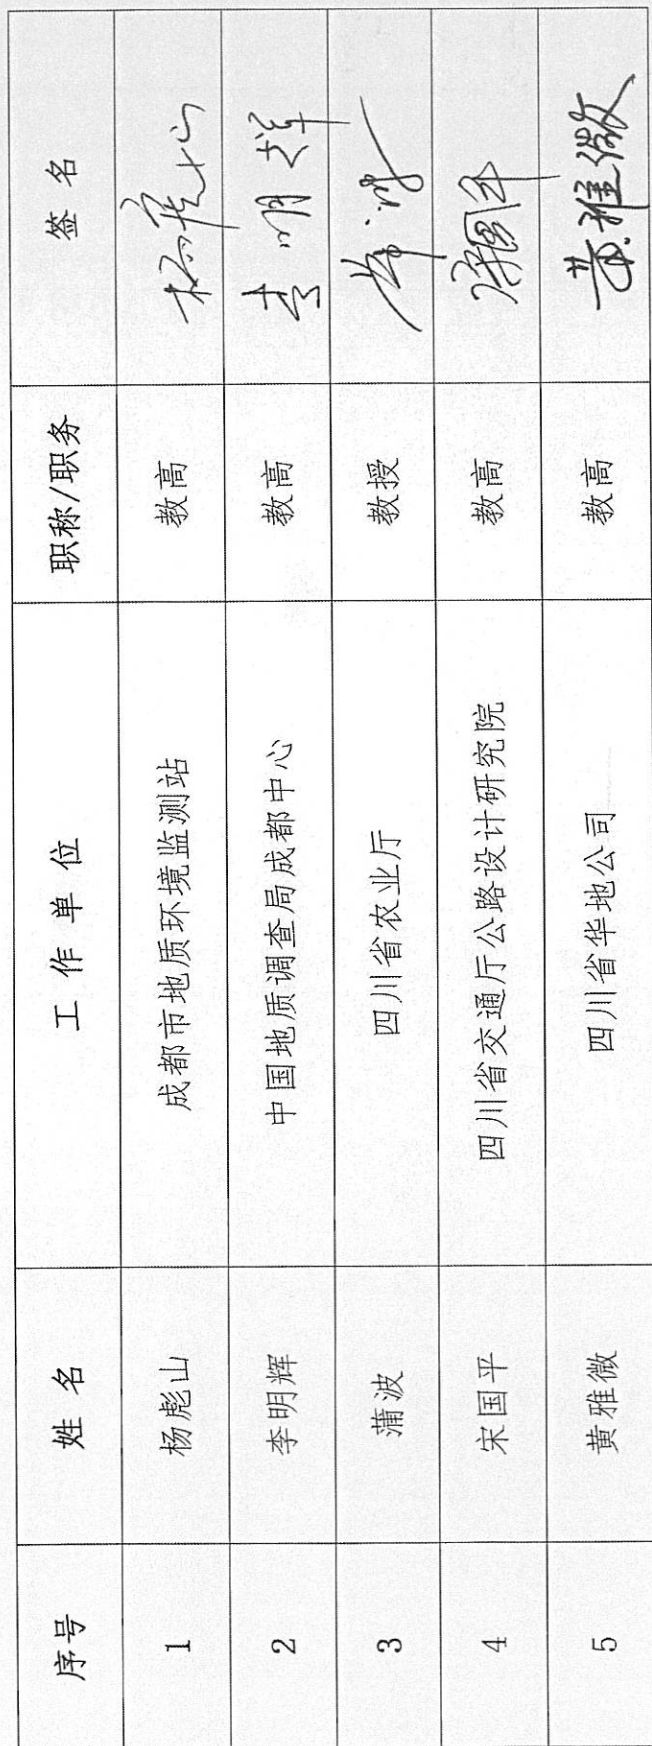 序号 姓名 工作单位 职称/职务 签名
1 杨彪山 成都市地质环境监测站 教高 杨彪山
2 李明辉 中国地质调查局成都中心 教高 李明辉
3 蒲波 四川省农业厅 教授
4 宋国平 四川省交通厅公路设计研究院 教高
5 黄雅微 四川省华地公司 教高 黄雅微